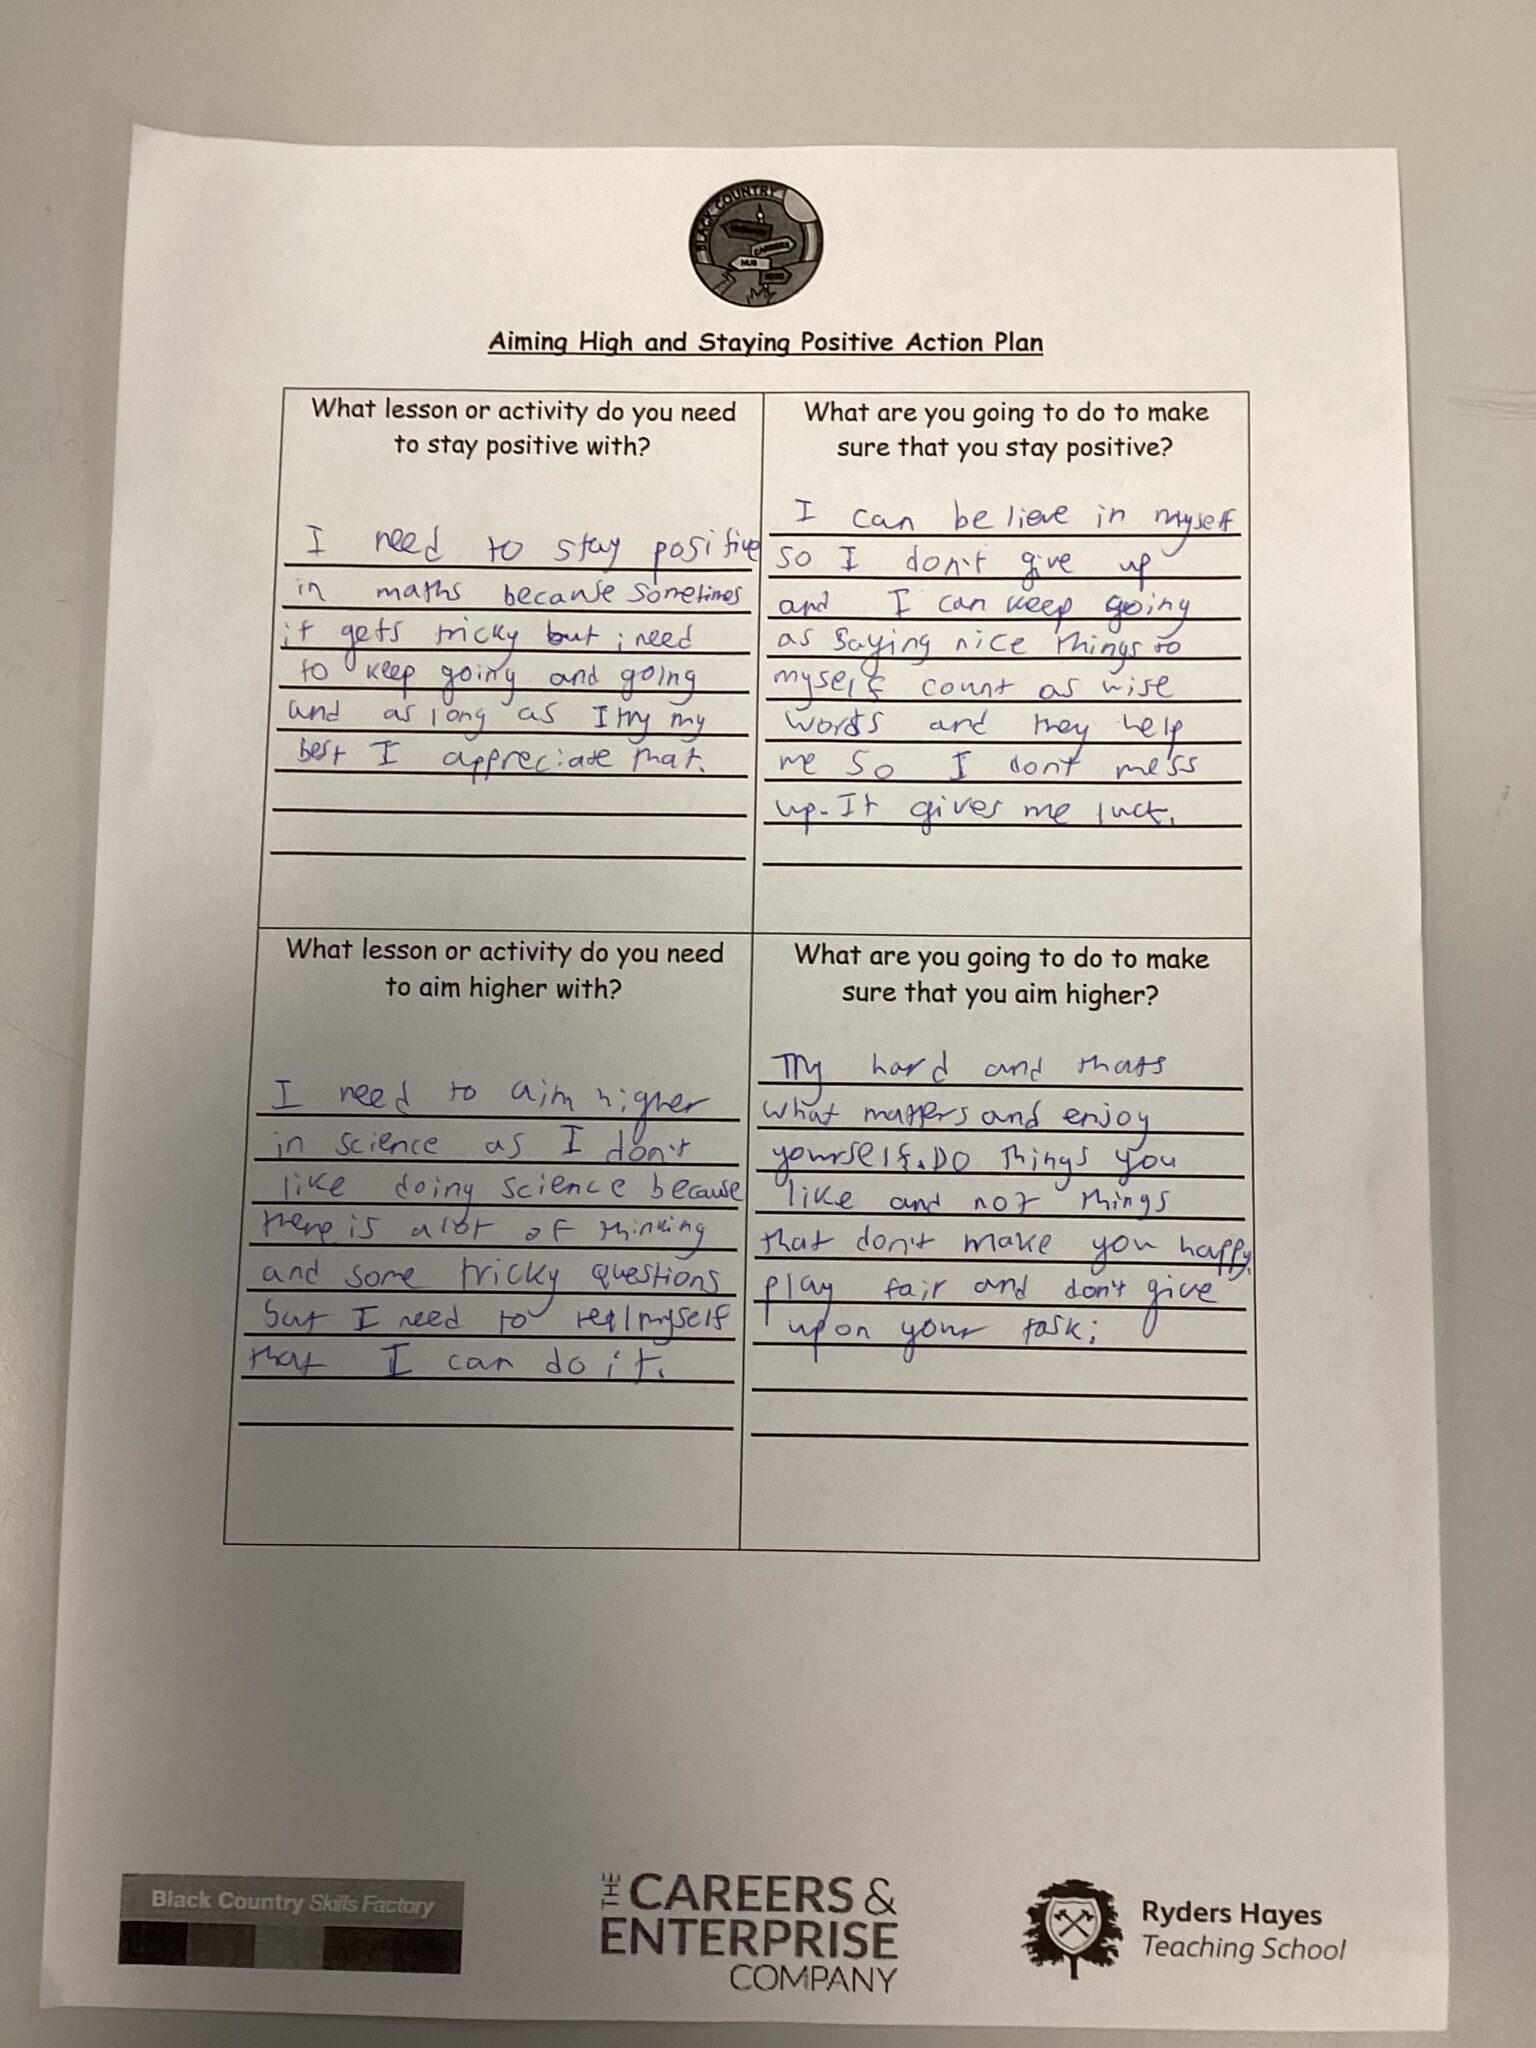 BLACK COUNTRY
CAREERS
HUB
Aiming High and Staying Positive Action Plan
What lesson or activity do you need
to stay positive with?
I need to stay positive
in maths because sometimes
it gets tricky but i need
to keep going and going
and as long as I try my
best I appreciate that.
What are you going to do to make
sure that you stay positive?
I can believe in myself
so I don't give up
and I can keep going
as saying nice things to
myself count as wise
words and they help
me so I dont mess
up. It gives me luck.
What lesson or activity do you need
to aim higher with?
I need to aim higher
in science as I don't
like doing science because
there is a lot of thinking
and some tricky questions
but I need to tell myself
that I can do it.
What are you going to do to make
sure that you aim higher?
Try hard and thats
what matters and enjoy
yourself. Do things you
like and not things
that don't make you happy.
play fair and don't give
up on your task.
Black Country Skills Factory
THE CAREERS &
ENTERPRISE
COMPANY
Ryders Hayes
Teaching School